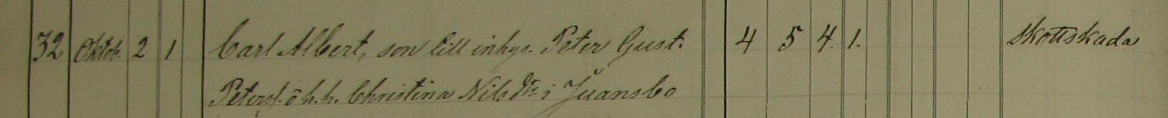 32 Oktob. 2 1 Carl Albert, son till inhys. Peter Gust. 4 5 4. 1. Skottskada
Petersf. o h.h. Christina Nilsdtr i Juansbo